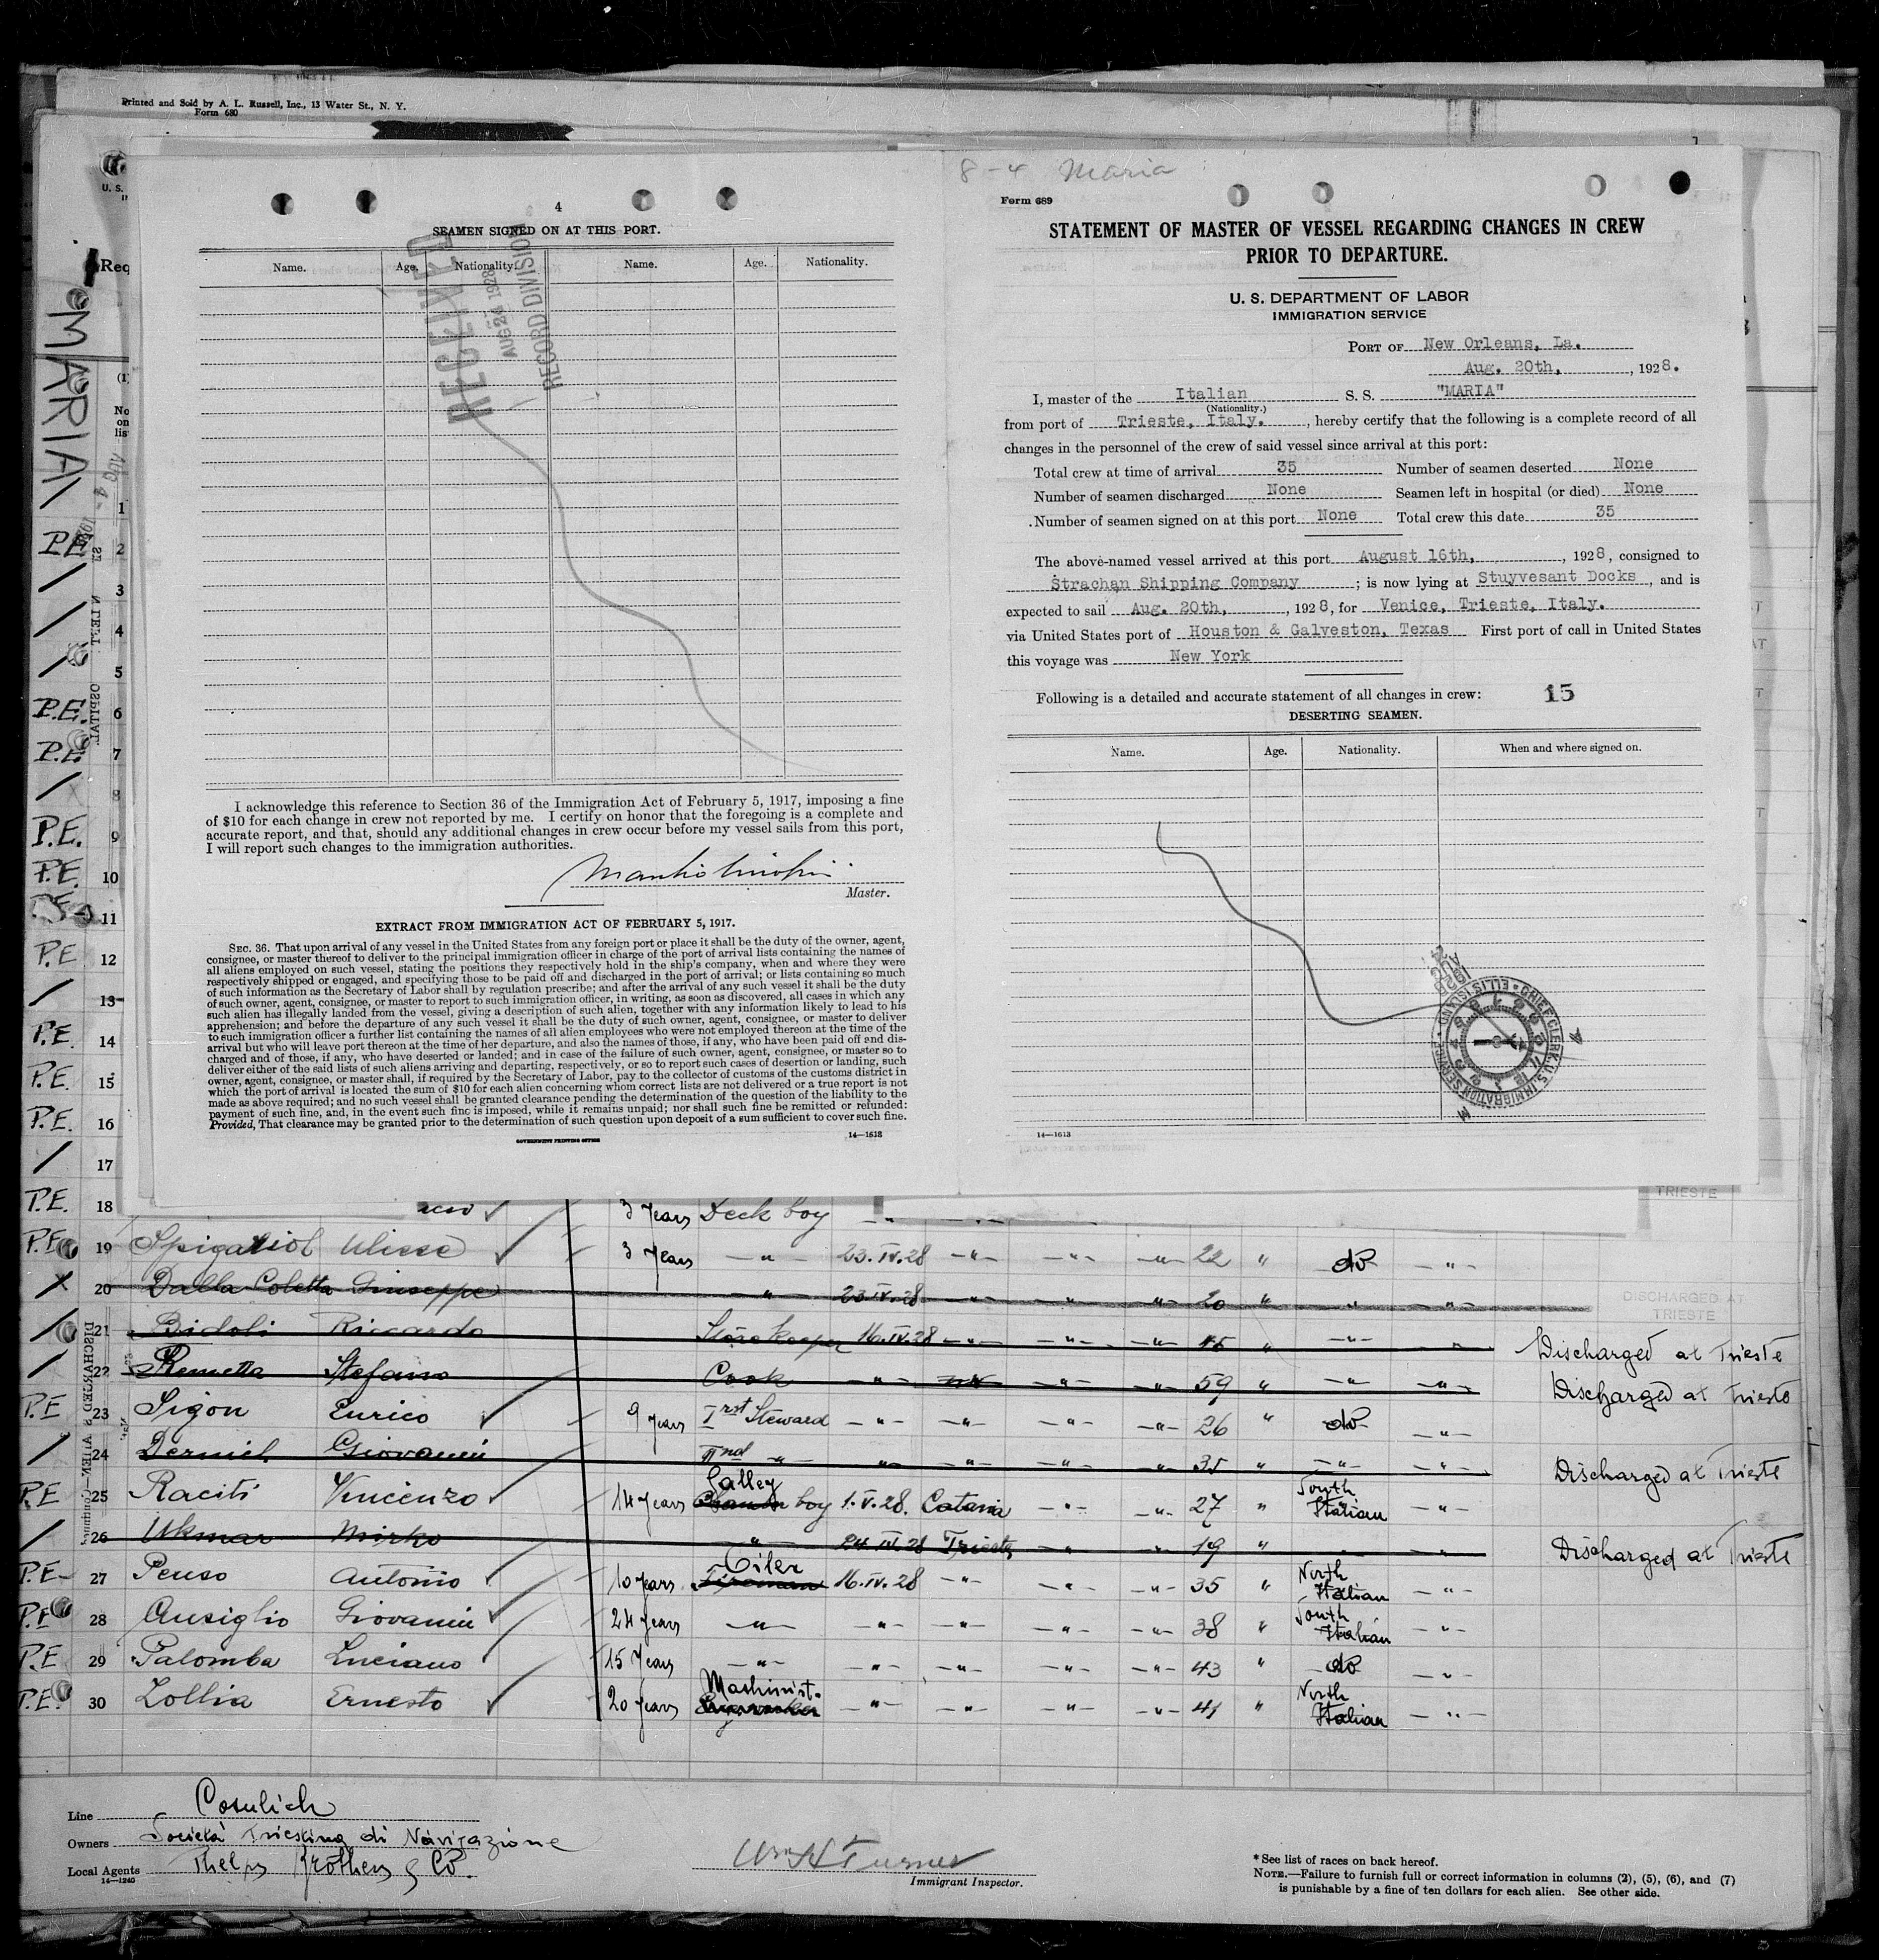 Printed and Sold by A. L. Russell, Inc., 13 Water St., N. Y.
Form 680
U. S.
Req
MARIA
4
SEAMEN SIGNED ON AT THIS PORT.
Name. Age. Nationality. Name. Age. Nationality.
RECEIVED
AUG 24 1928
RECORD DIVISION
I acknowledge this reference to Section 36 of the Immigration Act of February 5, 1917, imposing a fine
of $10 for each change in crew not reported by me. I certify on honor that the foregoing is a complete and
accurate report, and that, should any additional changes in crew occur before my vessel sails from this port,
I will report such changes to the immigration authorities.
Master.
EXTRACT FROM IMMIGRATION ACT OF FEBRUARY 5, 1917.
SEC. 36. That upon arrival of any vessel in the United States from any foreign port or place it shall be the duty of the owner, agent,
consignee, or master thereof to deliver to the principal immigration officer in charge of the port of arrival lists containing the names of
all aliens employed on such vessel, stating the positions they respectively hold in the ship's company, when and where they were
respectively shipped or engaged, and specifying those to be paid off and discharged in the port of arrival; or lists containing so much
of such information as the Secretary of Labor shall by regulation prescribe; and after the arrival of any such vessel it shall be the duty
of such owner, agent, consignee, or master to report to such immigration officer, in writing, as soon as discovered, all cases in which any
such alien has illegally landed from the vessel, giving a description of such alien, together with any information likely to lead to his
apprehension; and before the departure of any such vessel it shall be the duty of such owner, agent, consignee, or master to deliver
to such immigration officer a further list containing the names of all alien employees who were not employed thereon at the time of the
arrival but who will leave port thereon at the time of her departure, and also the names of those, if any, who have been paid off and dis-
charged and of those, if any, who have deserted or landed; and in case of the failure of such owner, agent, consignee, or master so to
deliver either of the said lists of such aliens arriving and departing, respectively, or so to report such cases of desertion or landing, such
owner, agent, consignee, or master shall, if required by the Secretary of Labor, pay to the collector of customs of the customs district in
which the port of arrival is located the sum of $10 for each alien concerning whom correct lists are not delivered or a true report is not
made as above required; and no such vessel shall be granted clearance pending the determination of the question of the liability to the
payment of such fine, and, in the event such fine is imposed, while it remains unpaid; nor shall such fine be remitted or refunded:
Provided, That clearance may be granted prior to the determination of such question upon deposit of a sum sufficient to cover such fine.
GOVERNMENT PRINTING OFFICE
14—1613
8-4 Maria
Form 689
STATEMENT OF MASTER OF VESSEL REGARDING CHANGES IN CREW
PRIOR TO DEPARTURE.
U. S. DEPARTMENT OF LABOR
IMMIGRATION SERVICE
PORT OF New Orleans, La.
Aug. 20th, , 1928.
I, master of the Italian S. S. "MARIA"
(Nationality.)
from port of Trieste, Italy. , hereby certify that the following is a complete record of all
changes in the personnel of the crew of said vessel since arrival at this port:
Total crew at time of arrival 35 Number of seamen deserted None
Number of seamen discharged None Seamen left in hospital (or died) None
Number of seamen signed on at this port None Total crew this date 35
The above-named vessel arrived at this port August 16th, , 1928, consigned to
Strachan Shipping Company ; is now lying at Stuyvesant Docks , and is
expected to sail Aug. 20th, , 1928, for Venice, Trieste, Italy.
via United States port of Houston & Galveston, Texas First port of call in United States
this voyage was New York
Following is a detailed and accurate statement of all changes in crew: 15
DESERTING SEAMEN.
Name. Age. Nationality. When and where signed on.
CHIEF CLERK U. S. IMMIGRATION SERVICE ELLIS ISLAND
1928 AUG 24
14—1613
1
P.E. 2
3
4
5
P.E. 6
P.E. 7
8
P.E. 9
P.E. 10
P.E. 11
P.E. 12
13
P.E. 14
P.E. 15
P.E. 16
17
TRIESTE
P.E. 18 3 years Deck boy
P.E. 19 Ulisse 3 years -"- 23.IV.28 -"- -"- -"- 22 " do -"-
20 Dalla Coletta Giuseppe " 23.IV.28 -"- -"- -"- 20 " " -"- DISCHARGED AT TRIESTE
21 Bidoli Riccardo Storekeeper 16.IV.28 -"- -"- -"- 45 " -"- " Discharged at Trieste
22 Remetta Stefano Cook -"- -"- -"- -"- 59 " -"- -"- Discharged at Trieste
P.E 23 Sigon Enrico 9 years Irst Steward -"- -"- -"- -"- 26 " do -"-
24 Giovanni IInd -"- -"- -"- -"- -"- 35 " -"- -"- Discharged at Trieste
P.E 25 Raciti Vincenzo 14 years Galley boy 1.V.28. Catania -"- -"- 27 " South Italian -"-
26 Ukmar Mirko " 24.IV.28 Trieste " " 19 " " " Discharged at Trieste
P.E- 27 Penso Antonio 10 years Oiler Fireman 16.IV.28 -"- -"- -"- 35 " North Italian -"-
P.E 28 Ausiglio Giovanni 24 years -"- -"- -"- -"- -"- 38 " South Italian -"-
P.E 29 Palomba Luciano 15 years -"- -"- -"- -"- -"- 43 " do -"-
P.E. 30 Zollia Ernesto 20 years Mashinist. -"- -"- -"- -"- 41 " North Italian -"-
Line Cosulich
Owners Società Triestina di Navigazione
Local Agents Phelps Brothers & Co.
14—1240
Wm H Turner
Immigrant Inspector.
* See list of races on back hereof.
NOTE.—Failure to furnish full or correct information in columns (2), (5), (6), and (7)
is punishable by a fine of ten dollars for each alien. See other side.